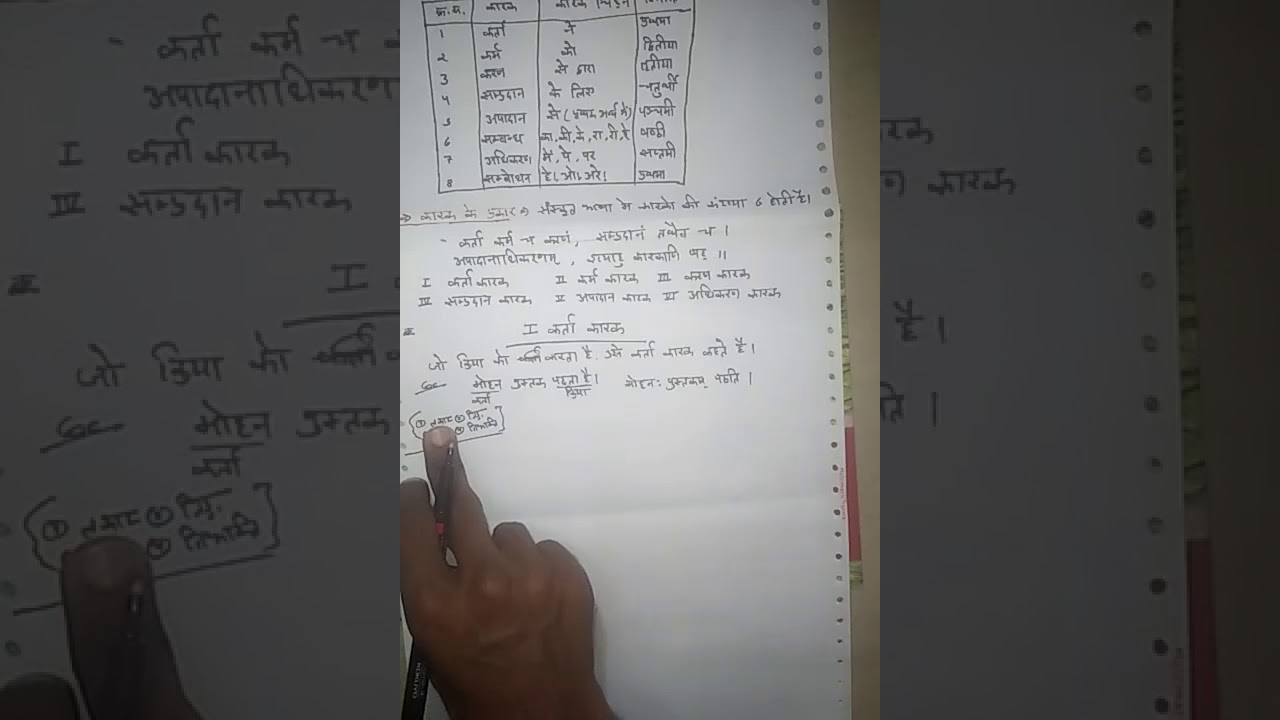 क्र.स. कारक कारक चिह्न
1 कर्ता ने प्रथमा
2 कर्म को द्वितीया
3 करण से द्वारा तृतीया
4 सम्प्रदान के लिए चतुर्थी
5 अपादान से (पृथक अर्थ में) पञ्चमी
6 सम्बन्ध का, की, के, रा, री, रे षष्ठी
7 अधिकरण में, पे, पर सप्तमी
8 सम्बोधन हे! ओ! अरे! प्रथमा
⇒ कारक के प्रकार ⇒ संस्कृत भाषा में कारकों की संख्या 6 होती है।
" कर्ता कर्म च करणं, सम्प्रदानं तथैव च ।
अपादानाधिकरणम्, इत्याहु कारकाणि षट् ॥
I कर्ता कारक II कर्म कारक III करण कारक
III सम्प्रदान कारक V अपादान कारक VI अधिकरण कारक
I कर्ता कारक
जो क्रिया को करता है, उसे कर्ता कारक कहते है।
मोहन पुस्तक पढता है। मोहनः पुस्तकम् पठति ।
कर्ता क्रिया